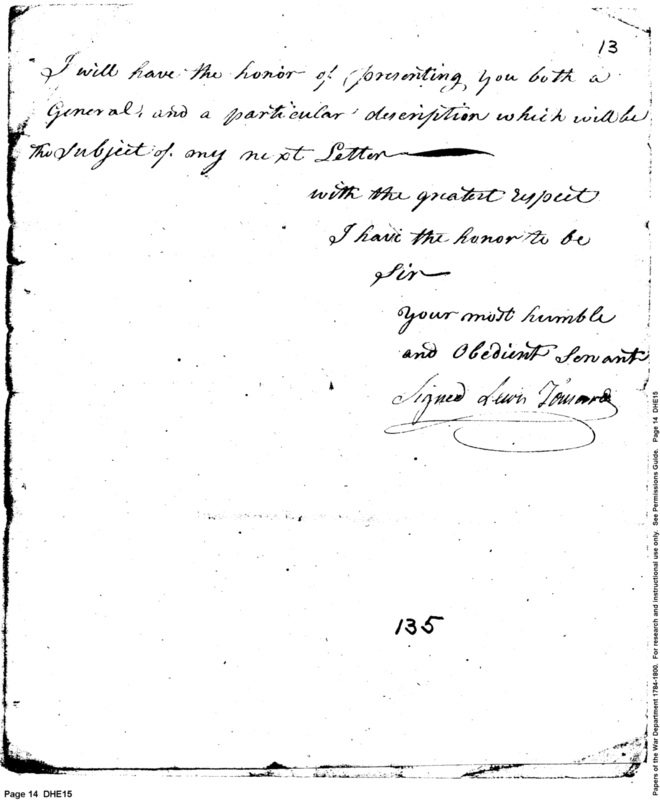 13
I will have the honor of presenting you both a
General, and a particular description which will be
the subject of my next Letter
with the greatest respect
I have the honor to be
Sir
Your most humble
and Obedient Servant
Signed Lewis Tousard
135
Page 14 DHE15
Papers of the War Department 1784-1800. For research and instructional use only. See Permissions Guide. Page 14 DHE15